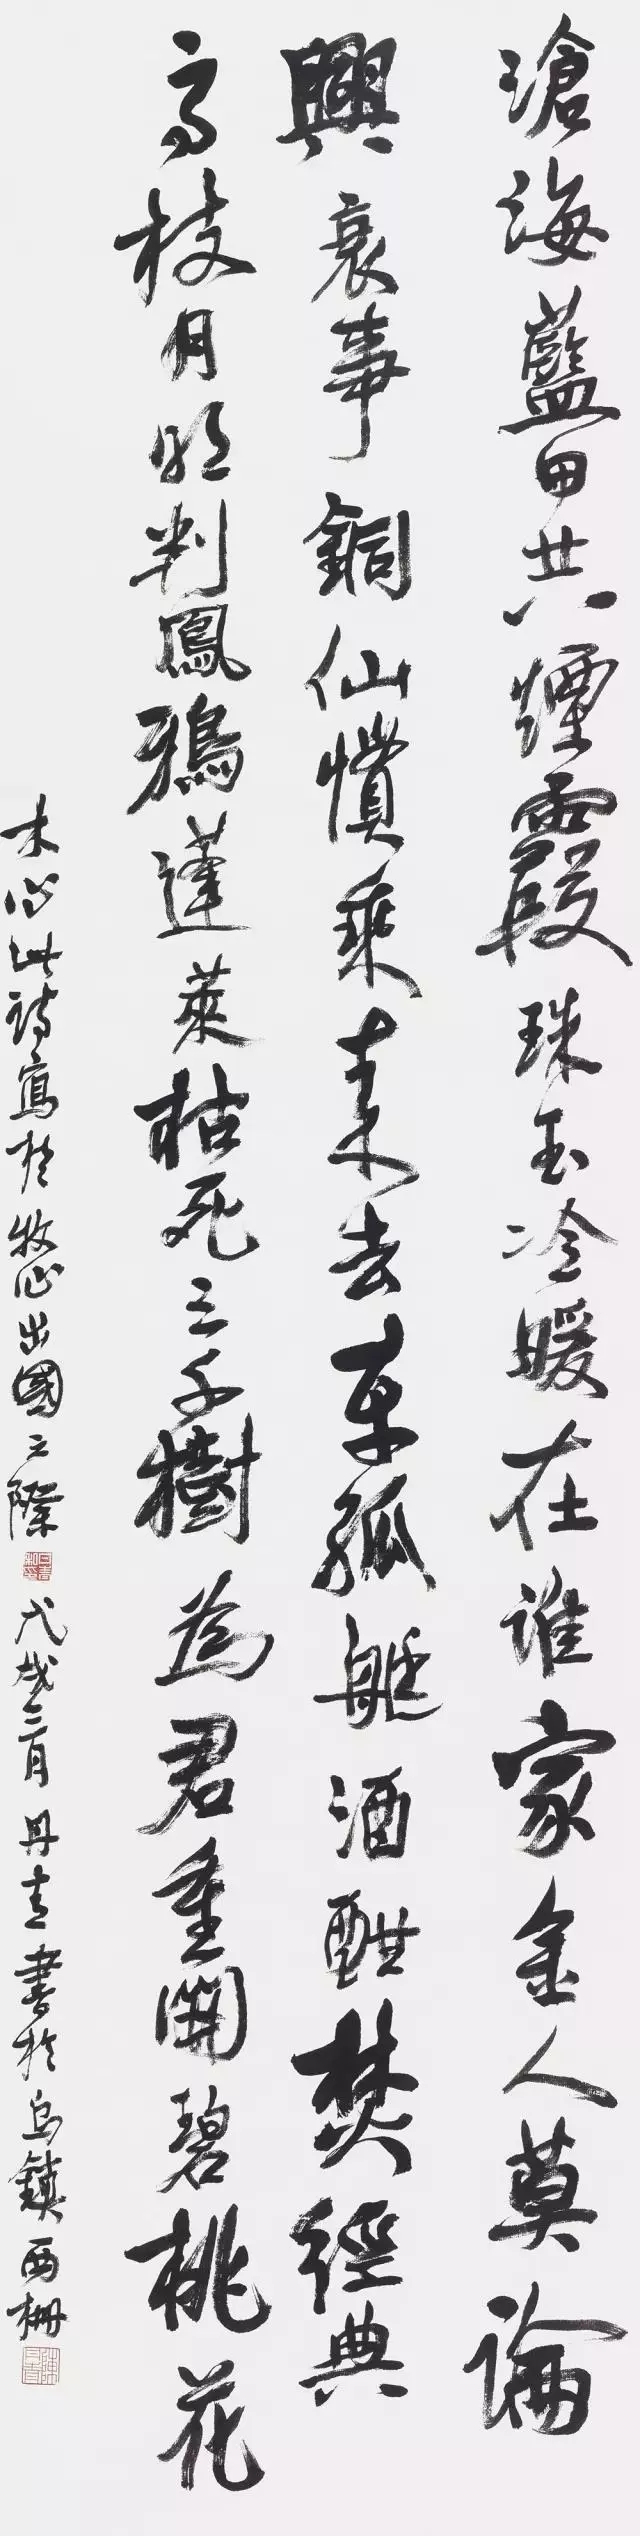 滄海藍田共煙霞珠玉冷暖在誰家金人莫論
興衰事銅仙慣乘來去車孤艇酒酣焚經典
高枝月明判鳳鴉蓬萊枯死三千樹為君重開碧桃花
木心此詩寫於牧心出國之際 戊戌三月丹青書於烏鎮西柵